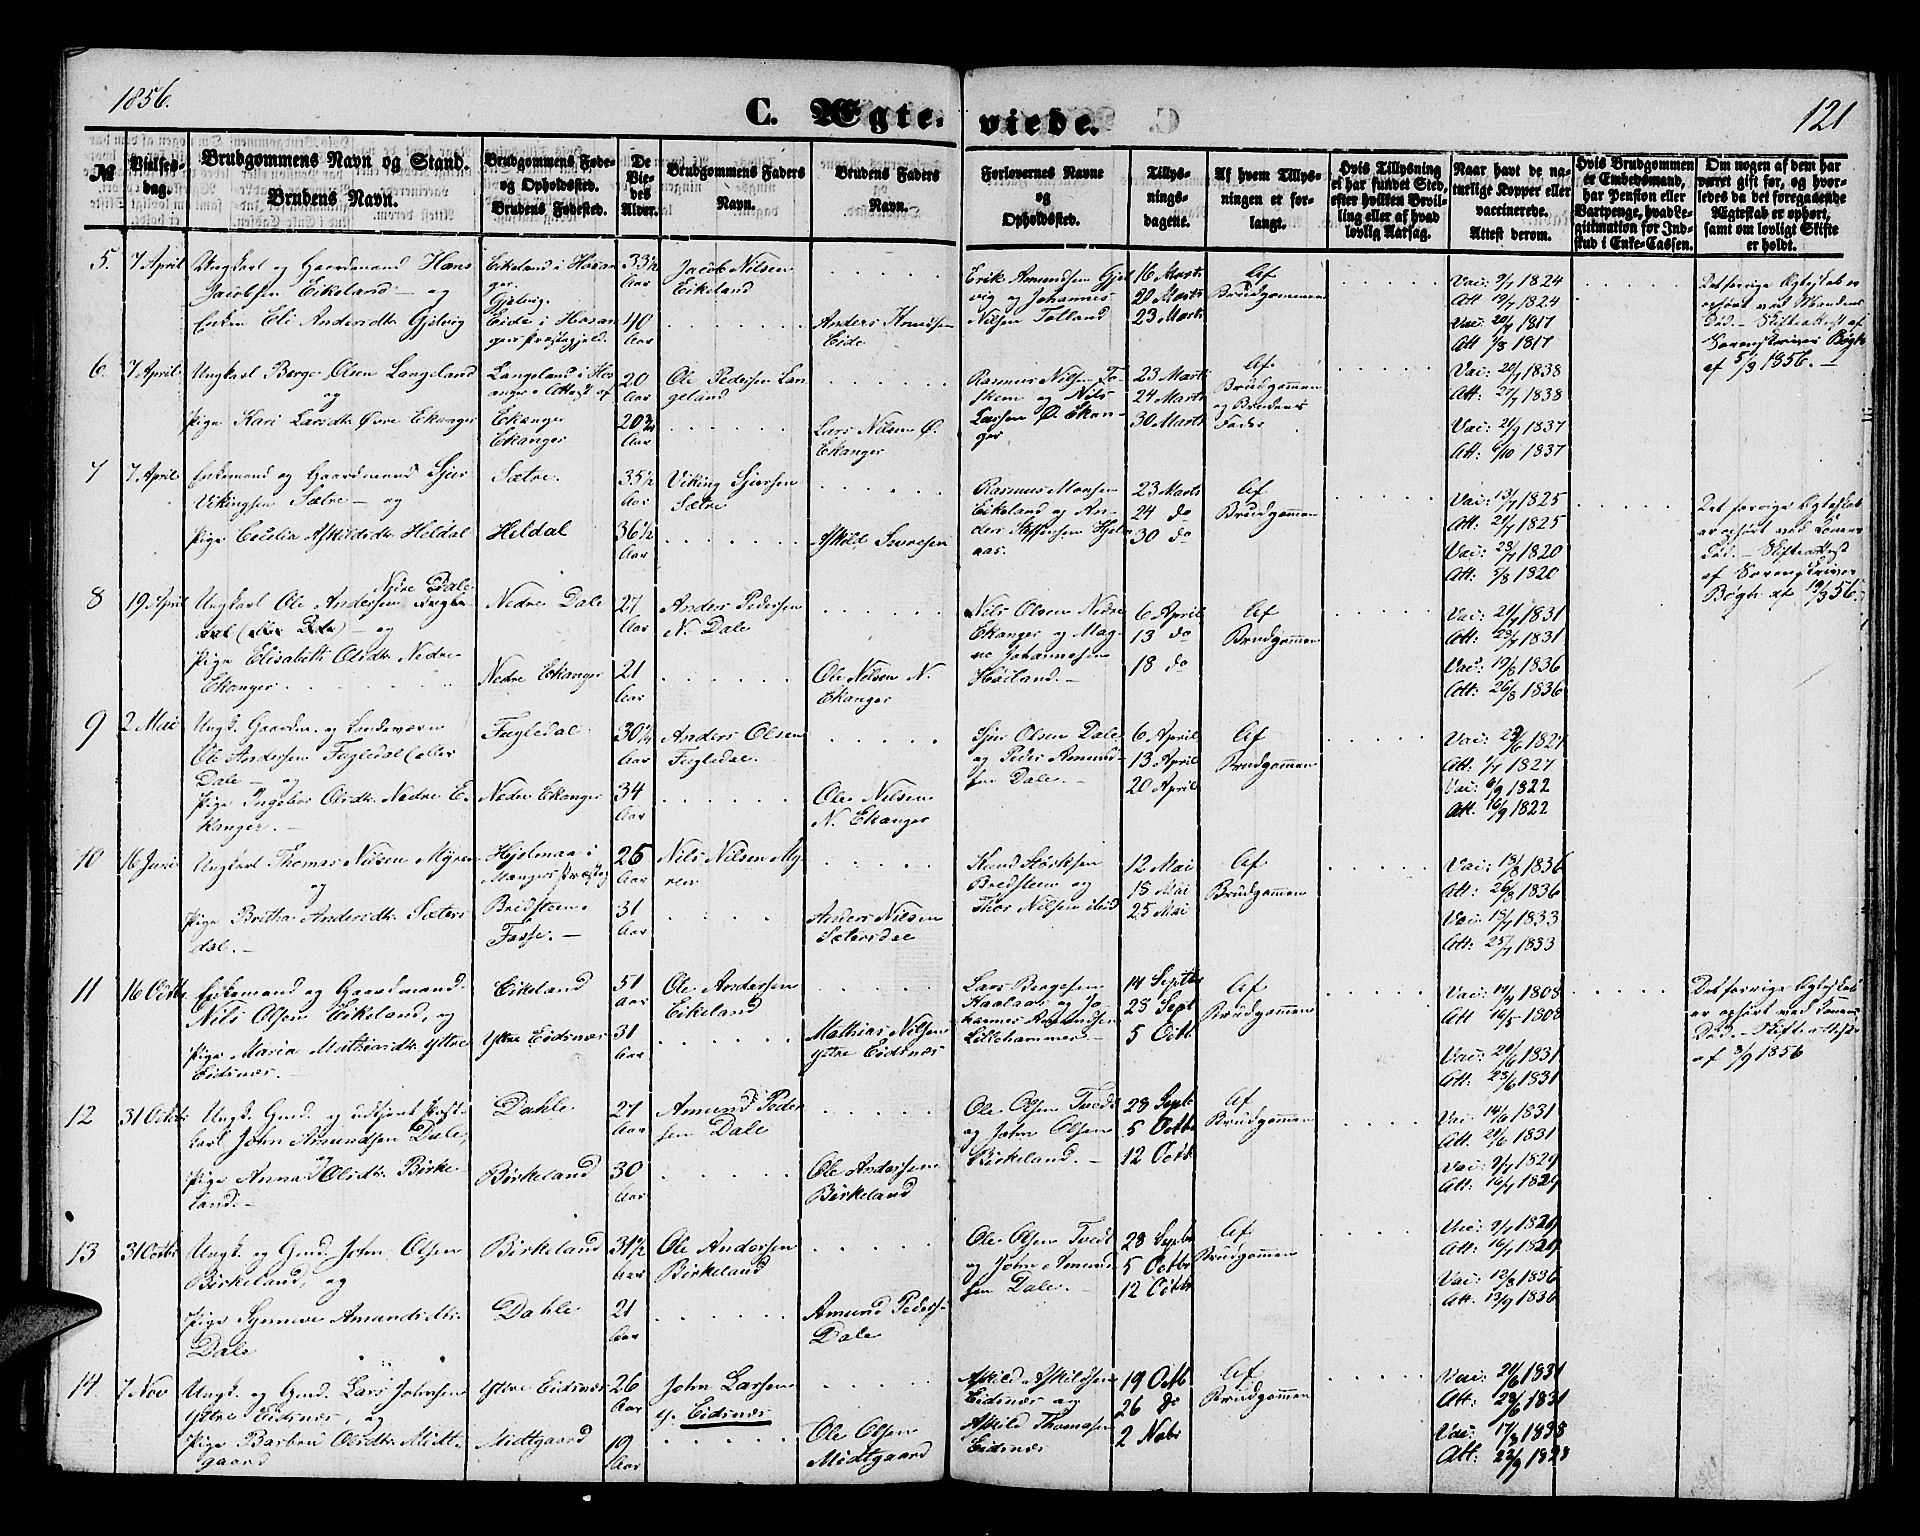 1856.
C. Ægte- viede.
121
№
Vielses-
dag.
Brudgommens Navn og Stand.
Brudens Navn.
Brudgommens Føde-
og Opholdssted.
Brudens Fødested.
De
Vie-
des
Alder.
Brudgommens Faders
Navn.
Brudens Faders
Navn.
Forlovernes Navne
og
Opholdssted.
Tillys-
nings-
dagene.
Af hvem Tillys-
ningen er for-
langt.
Hvis Tillysning
ei har fundet Sted,
efter hvilken Bevil-
ling eller af hvad
lovlig Aarsag.
Naar havt de na-
turlige Kopper eller
vaccinerede.
Attest derom.
Hvis Brudgommen
er Embedsmand,
har Pension eller
Vartpenge, hvad Le-
gitimation for Ind-
skud i Enke-Cassen.
Om nogen af dem har
været gift før, og hvor-
ledes da det foregaaende
Ægteskab er ophørt,
samt om lovligt Skifte
er holdt.
5. 7 April
Ungkarl og Gaardmand Hans
Jacobsen Eikeland – og
Enken Eli Andersdtr Gjelvig
Eikeland i Hosan
ger.
Gjelvig.
Eide i Hosan
gers Præstegjeld.
33½
Aar
40
Aar
Jacob Nilsen
Eikeland
Anders Knudsen
Eide
Erik Amundsen Gjel
vig og Johannes
Nilsen Tolland
16 Marts
20 Marts
23 Marts
Af
Brudgommen
Vac: 9/7 1824
Att 19/7 1824
Vac: 20/7 1817
Att 1/8 1817
Det forrige Ægteskab er
ophørt ved Mandens
Død. – Skifteattest af
Sorenskriver Bøgh
af 5/3 1856. –
6. 7 April
Ungkarl Børge Olsen Langeland
og
Pige Kari Larsdtr Øvre Ekanger
Langeland i Hos
anger
Ekanger
Ekanger
20
Aar
20¾
Aar
Ole Pedersen Lan
geland
Lars Nilsen Ø.
Ekanger
Rasmus Nilsen Fo-
skem og Nils
Larsen Ø. Ekan-
ger
23 Marts
24 Marts
30 Marts
Af
Brudgommen
og Brudens
Fader
Vac: 20/7 1838
Att: 27/7 1838
Vac: 21/9 1837
Att: 6/10 1837
7 7 April
Enkemand og Gaardmand Sjur
Vikingsen Sætre – og
Pige Cecilia Askildsdtr Heldal
Sætre.
Heldal
35½
Aar
36½
Aar
Viking Sjursen
Sætre
Askild Ivorsen
Rasmus Monsen
Eikeland og An-
ders Steffensen Hjelm
aas.
23 Marts
24 do
30 do
Af
Brudgommen
Vac: 13/7 1825
Att: 21/7 1825
Vac: 28/7 1820
Att: 5/8 1820
Det forrige Ægteskab
er ophørt ved Konens
Død. – Skifteattest
af Sorenskriver
Bøgh af 19/3 56.
8 19 April
Nedre Dale
Ungkarl Ole Andersen
og
Pige Elisabeth Olsdtr Nedre
Ekanger.
Nedre Dale
Nedre Ekanger
27
Aar
21
Aar
Anders Pedersen
N. Dale
Ole Nilsen N.
Ekanger
Nils Olsen Nedre
Ekanger og Mag-
ne Johannesen
Høiland. –
6 April
13 do
18 do
Af
Brudgommen
Vac: 21/7 1831
Att: 29/7 1831
Vac: 19/8 1836
Att: 26/8 1836
9 2 Mai
Ungk. Gaardm. og Landværn
Ole Andersen Fugledal (eller
Dale – og
Pige Ingebor Olsdtr. Nedre E-
kanger. –
Fugledal
Nedre Ekanger
30½
Aar
34
Aar
Anders Olsen
Fugledal.
Ole Nilsen
N. Ekanger
Sjur Olsen Dale
og Peder Amund-
sen Dale. –
6 April
13 April
20 April
Af
Brudgommen
Vac: 23/6 1827
Att: 1/7 1827
Vac: 6/9 1822
Att: 16/9 1822
10 16 Juni
Ungkarl Thomas Nilsen Myren
og
Pige Britha Andersdtr. Sæters
dal. –
Hjelmaa i
Mangers Præstg
Bredsteen.
Fosse. –
25
Aar
31
Aar
Nils Nilsen My-
ren
Anders Nilsen
Sætersdal
Knud Størksen
Bredsteen og
Thor Nilsen ibid
12 Mai
18 Mai
25 Mai
Af
Brudgommen
Vac: 19/8 1836
Att: 26/8 1836
Vac: 18/7 1833
Att: 25/7 1833
11 16 Octbr
Enkemand og Gaardmand.
Nils Olsen Eikeland, og
Pige Maria Mathiasdtr. Yttre
Eidsnæs. –
Eikeland
Yttre Eidsnæs
51
Aar
31
Aar
Ole Andersen
Eikeland
Mathias Nilsen
Yttre Eidsnæs
Lars Børgesen
Haalaas og Jo-
hannes Amundsen
Lillehammer –
14 Septbr
28 Sept
5 Octb.
Af
Brudgommen
Vac: 19/4 1808
Att 16/5 1808
Vac: 20/6 1831
Att: 28/6 1831
Det forrige Ægteskab
er ophørt ved Konens
Død. – Skifteattest
af 3/9 1856
12 31 Octbr
Ungk. Gmd. og udtjent
karl John Amundsen Dale,
og
Pige Anna Olsdtr. Birke
land. –
Dahle
Birkeland
27
Aar
30
Aar
Amund Peder
sen Dale
Ole Andersen
Birkeland
Ole Olsen Tvedt
og John Olsen
Birkeland. –
28 Sept.
5 Octbr
12 Octb.
Af
Brudgommen
Vac: 14/6 1831
Att: 21/6 1831
Vac: 9/7 1829
Att: 16/7 1829
13 31 Octbr
Ungk. og Gmd. John Olsen
Birkeland, og
Pige Synneve Amundsdtr.
Dale
Birkeland
Dahle
31½
Aar
21
Aar
Ole Andersen
Birkeland
Amund Peders-
Dale
Ole Olsen Tvedt
og John Amund
sen Dale. –
28 Septbr
5 Octbr
12 Octbr
Af
Brudgommen
Vac: 9/7 1829
Att: 16/7 1829
Vac: 12/8 1836
Att: 13/9 1836
14. 7 Nov
Ungk. og Gmd. Lars Johnsen
Yttre Eidsnæs, og
Pige Barbru Olsdtr. Midt-
gaard
Yttre Eidsnæs
Midtgaard
26
Aar
19
Aar
John Larsen
Y. Eidsnæs
Ole Olsen
Midtgaard
Askild Askildsen
Eidsnæs og
Askild Thomasen
Eidsnæs
19 Octb
26 do
2 Nobr
Af
Brudgommen
Vac: 20/6 1831
Att: 28/6 1831
Vac: 17/8 1838
Att: 22/9 1838